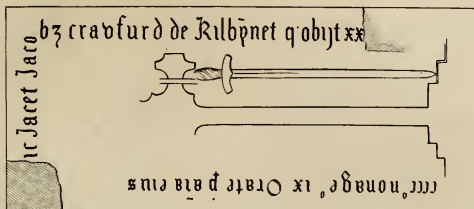 ic Jacet Jaco
bz cravfurd de Kilbẏnet q·obijt xx
cccc° nonage° ix Orate p̄ aīa eius